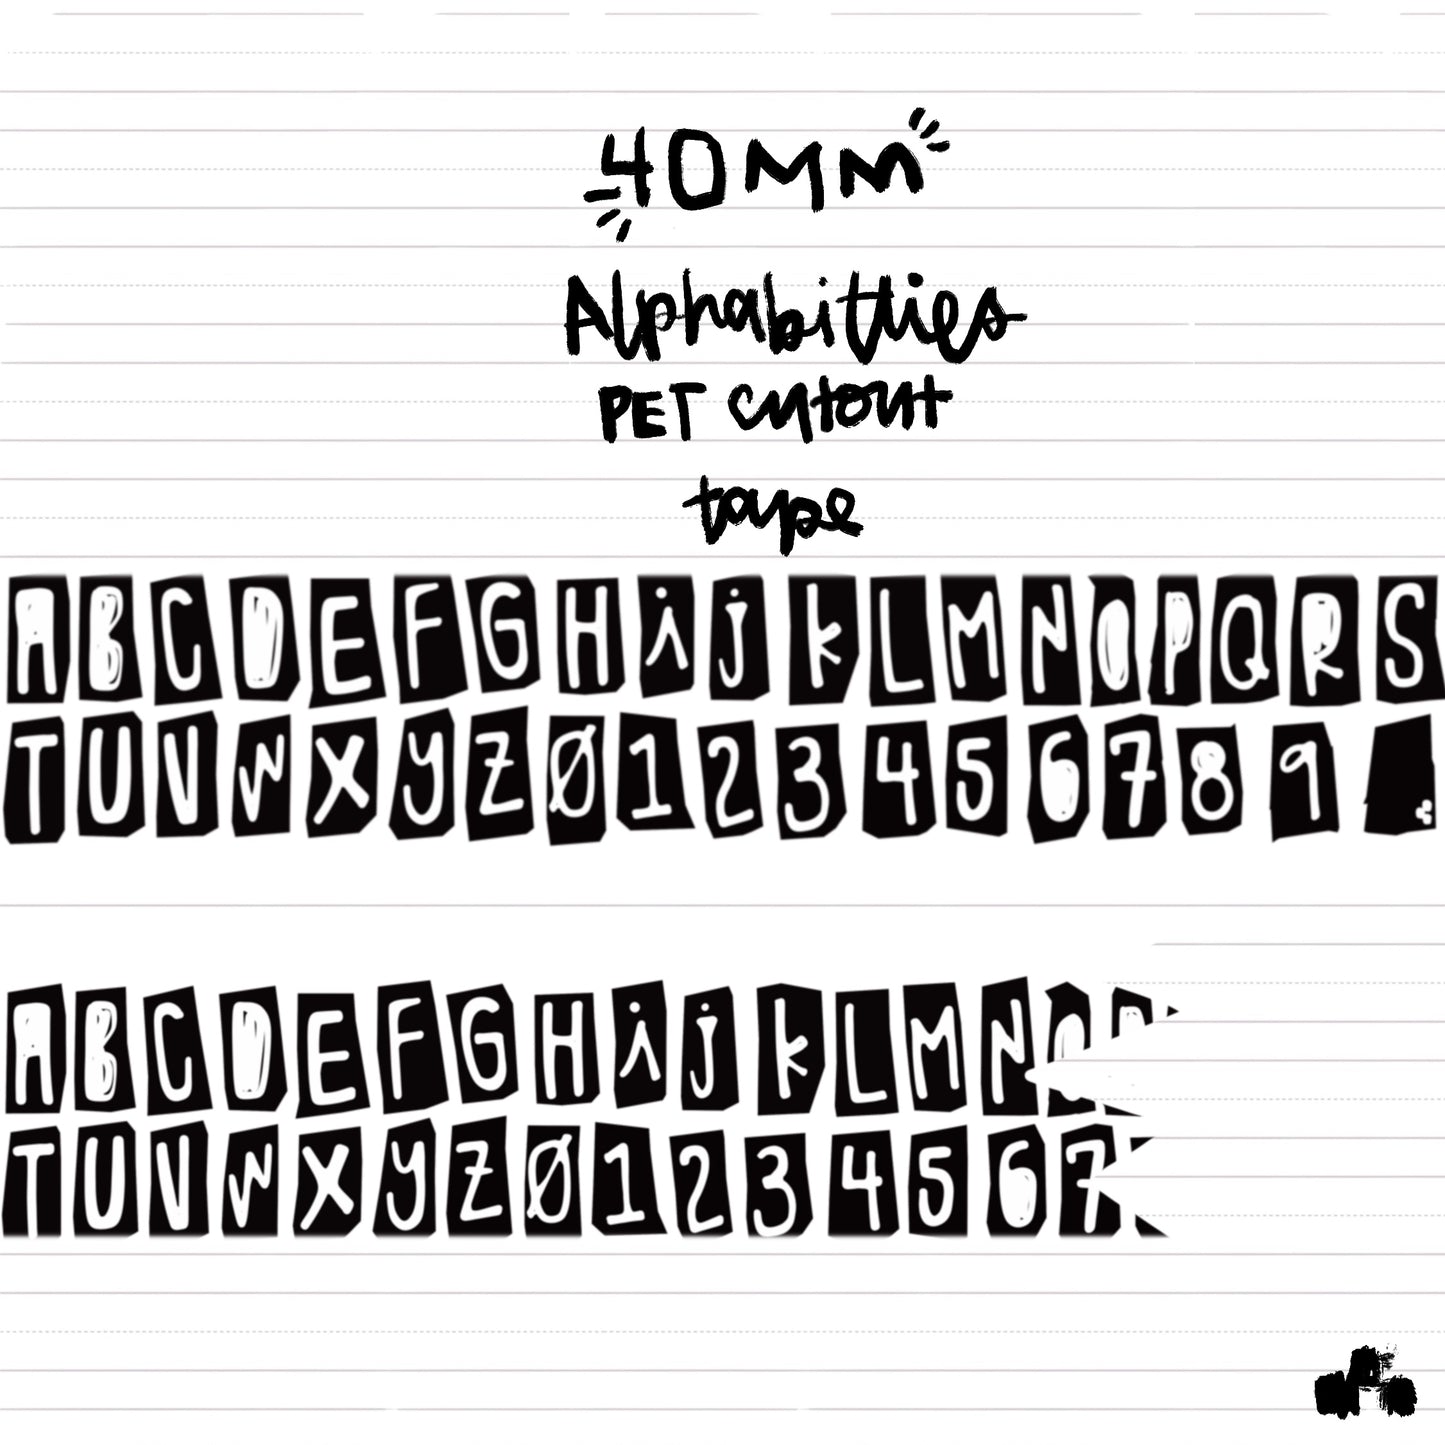 40MM
Alphabitties
PET cutout
tape
ABCDEFGHijKLMNOPQRS
TUVWXYZ0123456789
ABCDEFGHijKLMNO
TUVWXYZ01234567